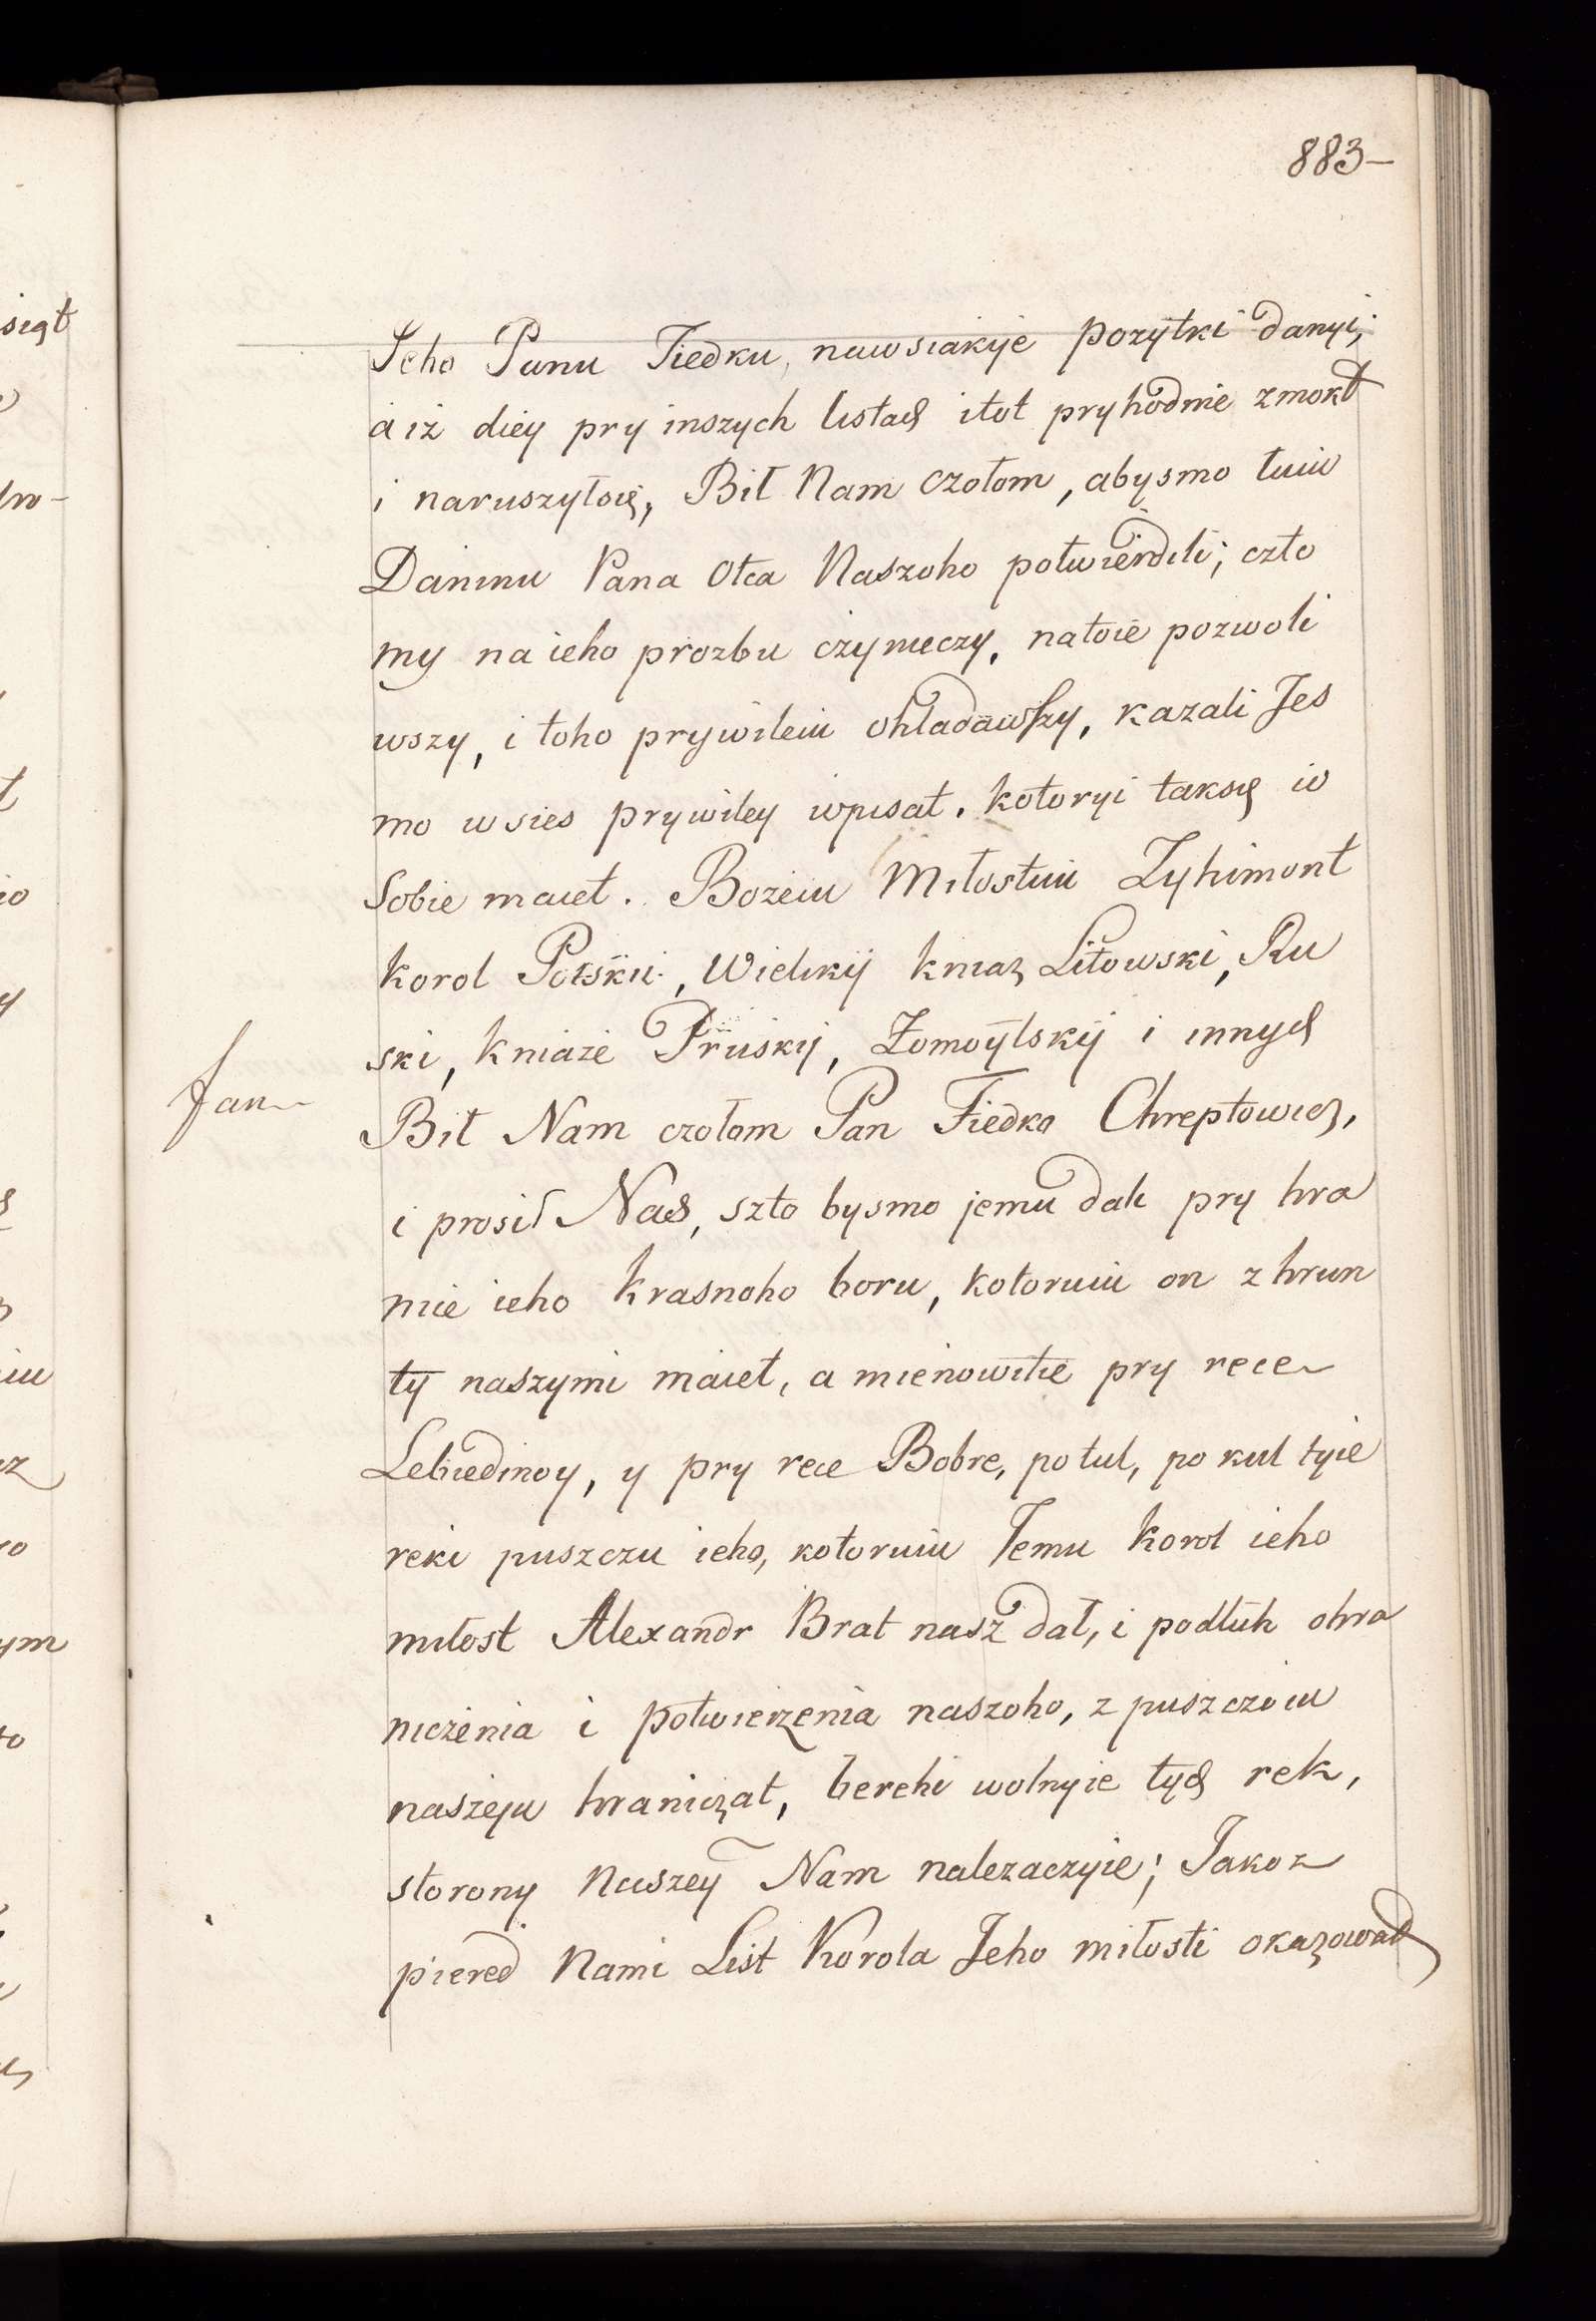 883–
Jeho Panu Fiedku, nawsiakije pozytki danyi,
a iż diey pry inszych listach itot pryhodnie zmokł
i naruszyłsię, Bił Nam czołom, abysmo tuiu
Daninu Pana Otca Naszoho potwierdili; czto
my na ieho prozbu czyneczy, natoie pozwoli
wszy, i toho prywileiu ohladawszy, kazali Jes
mo w sies prywiley wpisat, kotoryi taksię w
Sobie maiet. Bożeiu Miłostiu Zyhimont
korol Polskii, Wielikij kniaz Litowski, Ru
ski, kniaże Pruskij, Żomoytskij i innych
Jan
Bił Nam czołom Pan Fiedko Chreptowicz,
i prosił Nas, szto bysmo jemu dali pry hra
nie ieho krasnoho boru, kotoruiu on z hrun
ty naszymi maiet, a mienowitie pry rece
Lebiedinoy, y pry rece Bobre, potul, pokul tyie
reki puszczu ieho, kotoruiu Jemu korol ieho
miłost Alexandr Brat nasz dał, i podłuh ohra
niczenia i potwierzenia naszoho, z puszczoiu
naszeju hraniczat, berehi wolnyie tych rek,
storony Naszey Nam nalezaczyie; Jakoz
piered Nami List Korola Jeho miłosti okazował
sięt